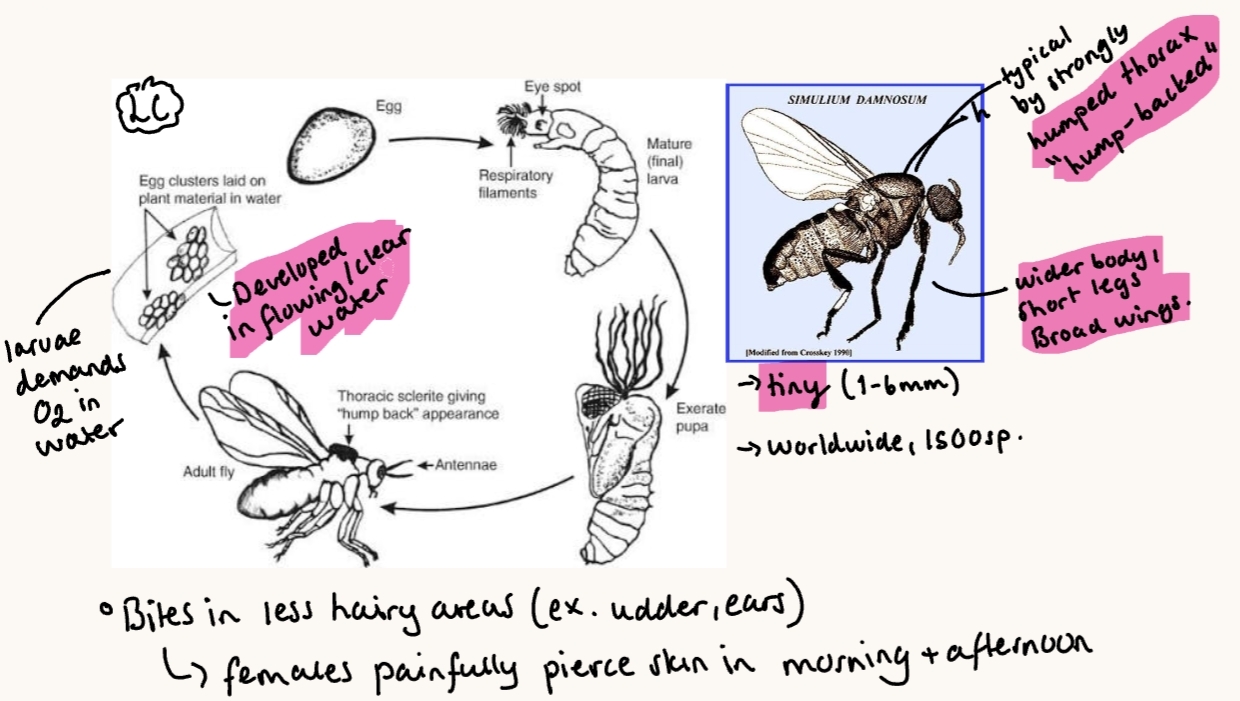 LC
Egg
Eye spot
Respiratory
filaments
Mature
(final)
larva
Egg clusters laid on
plant material in water
Developed
in flowing/clear
water
larvae
demands
O2 in
water
Thoracic sclerite giving
"hump back" appearance
Adult fly
Antennae
Exerate
pupa
SIMULIUM DAMNOSUM
[Modified from Crosskey 1990]
typical
by strongly
humped thorax
"hump-backed"
wider body,
short legs
Broad wings.
→ tiny (1-6mm)
→ worldwide, 1500sp.
° Bites in less hairy areas (ex. udder, ears)
↳ females painfully pierce skin in morning + afternoon